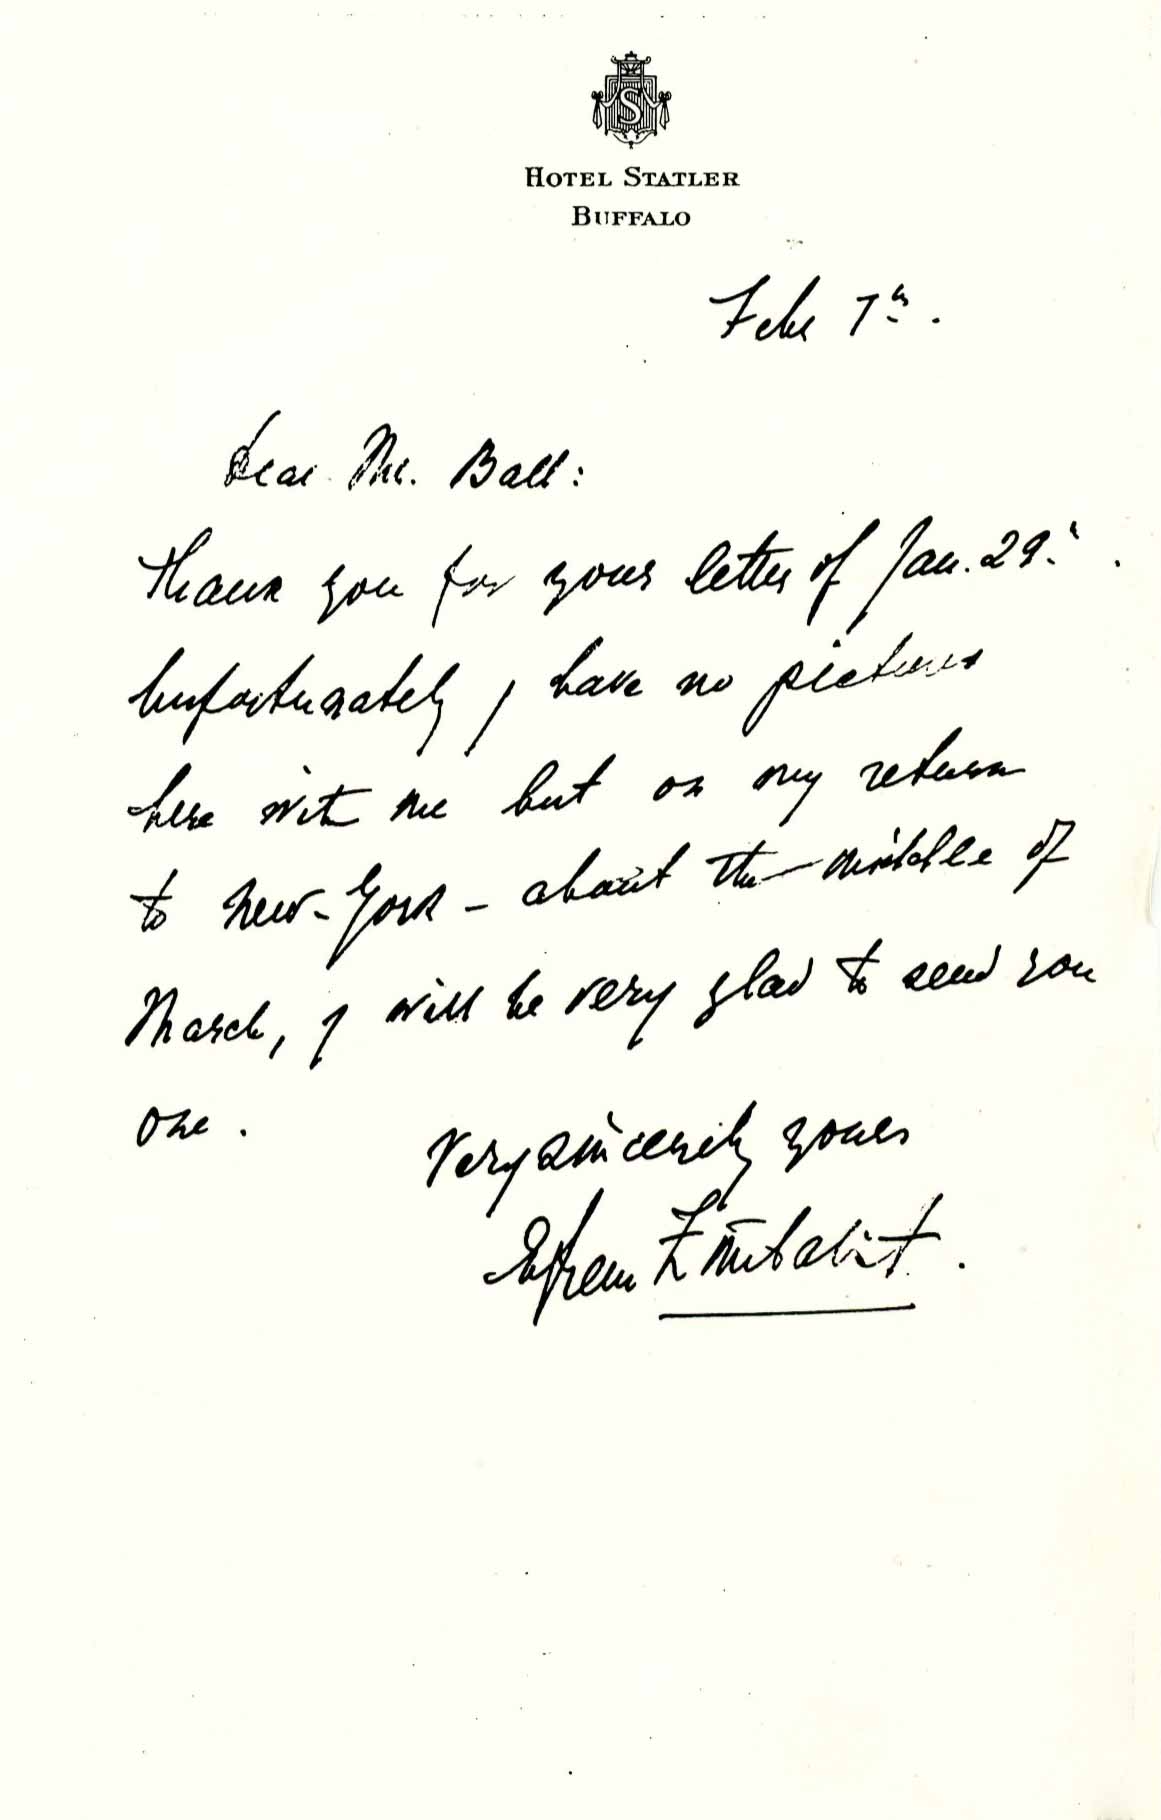 S
HOTEL STATLER
BUFFALO
Feb. 7th.
Dear Mr. Ball:
Thank you for your letter of Jan. 29.
Unfortunately I have no pictures
here with me but on my return
to New-York - about the middle of
March, I will be very glad to send you
one.
Very sincerely yours
Efrem Zimbalist.